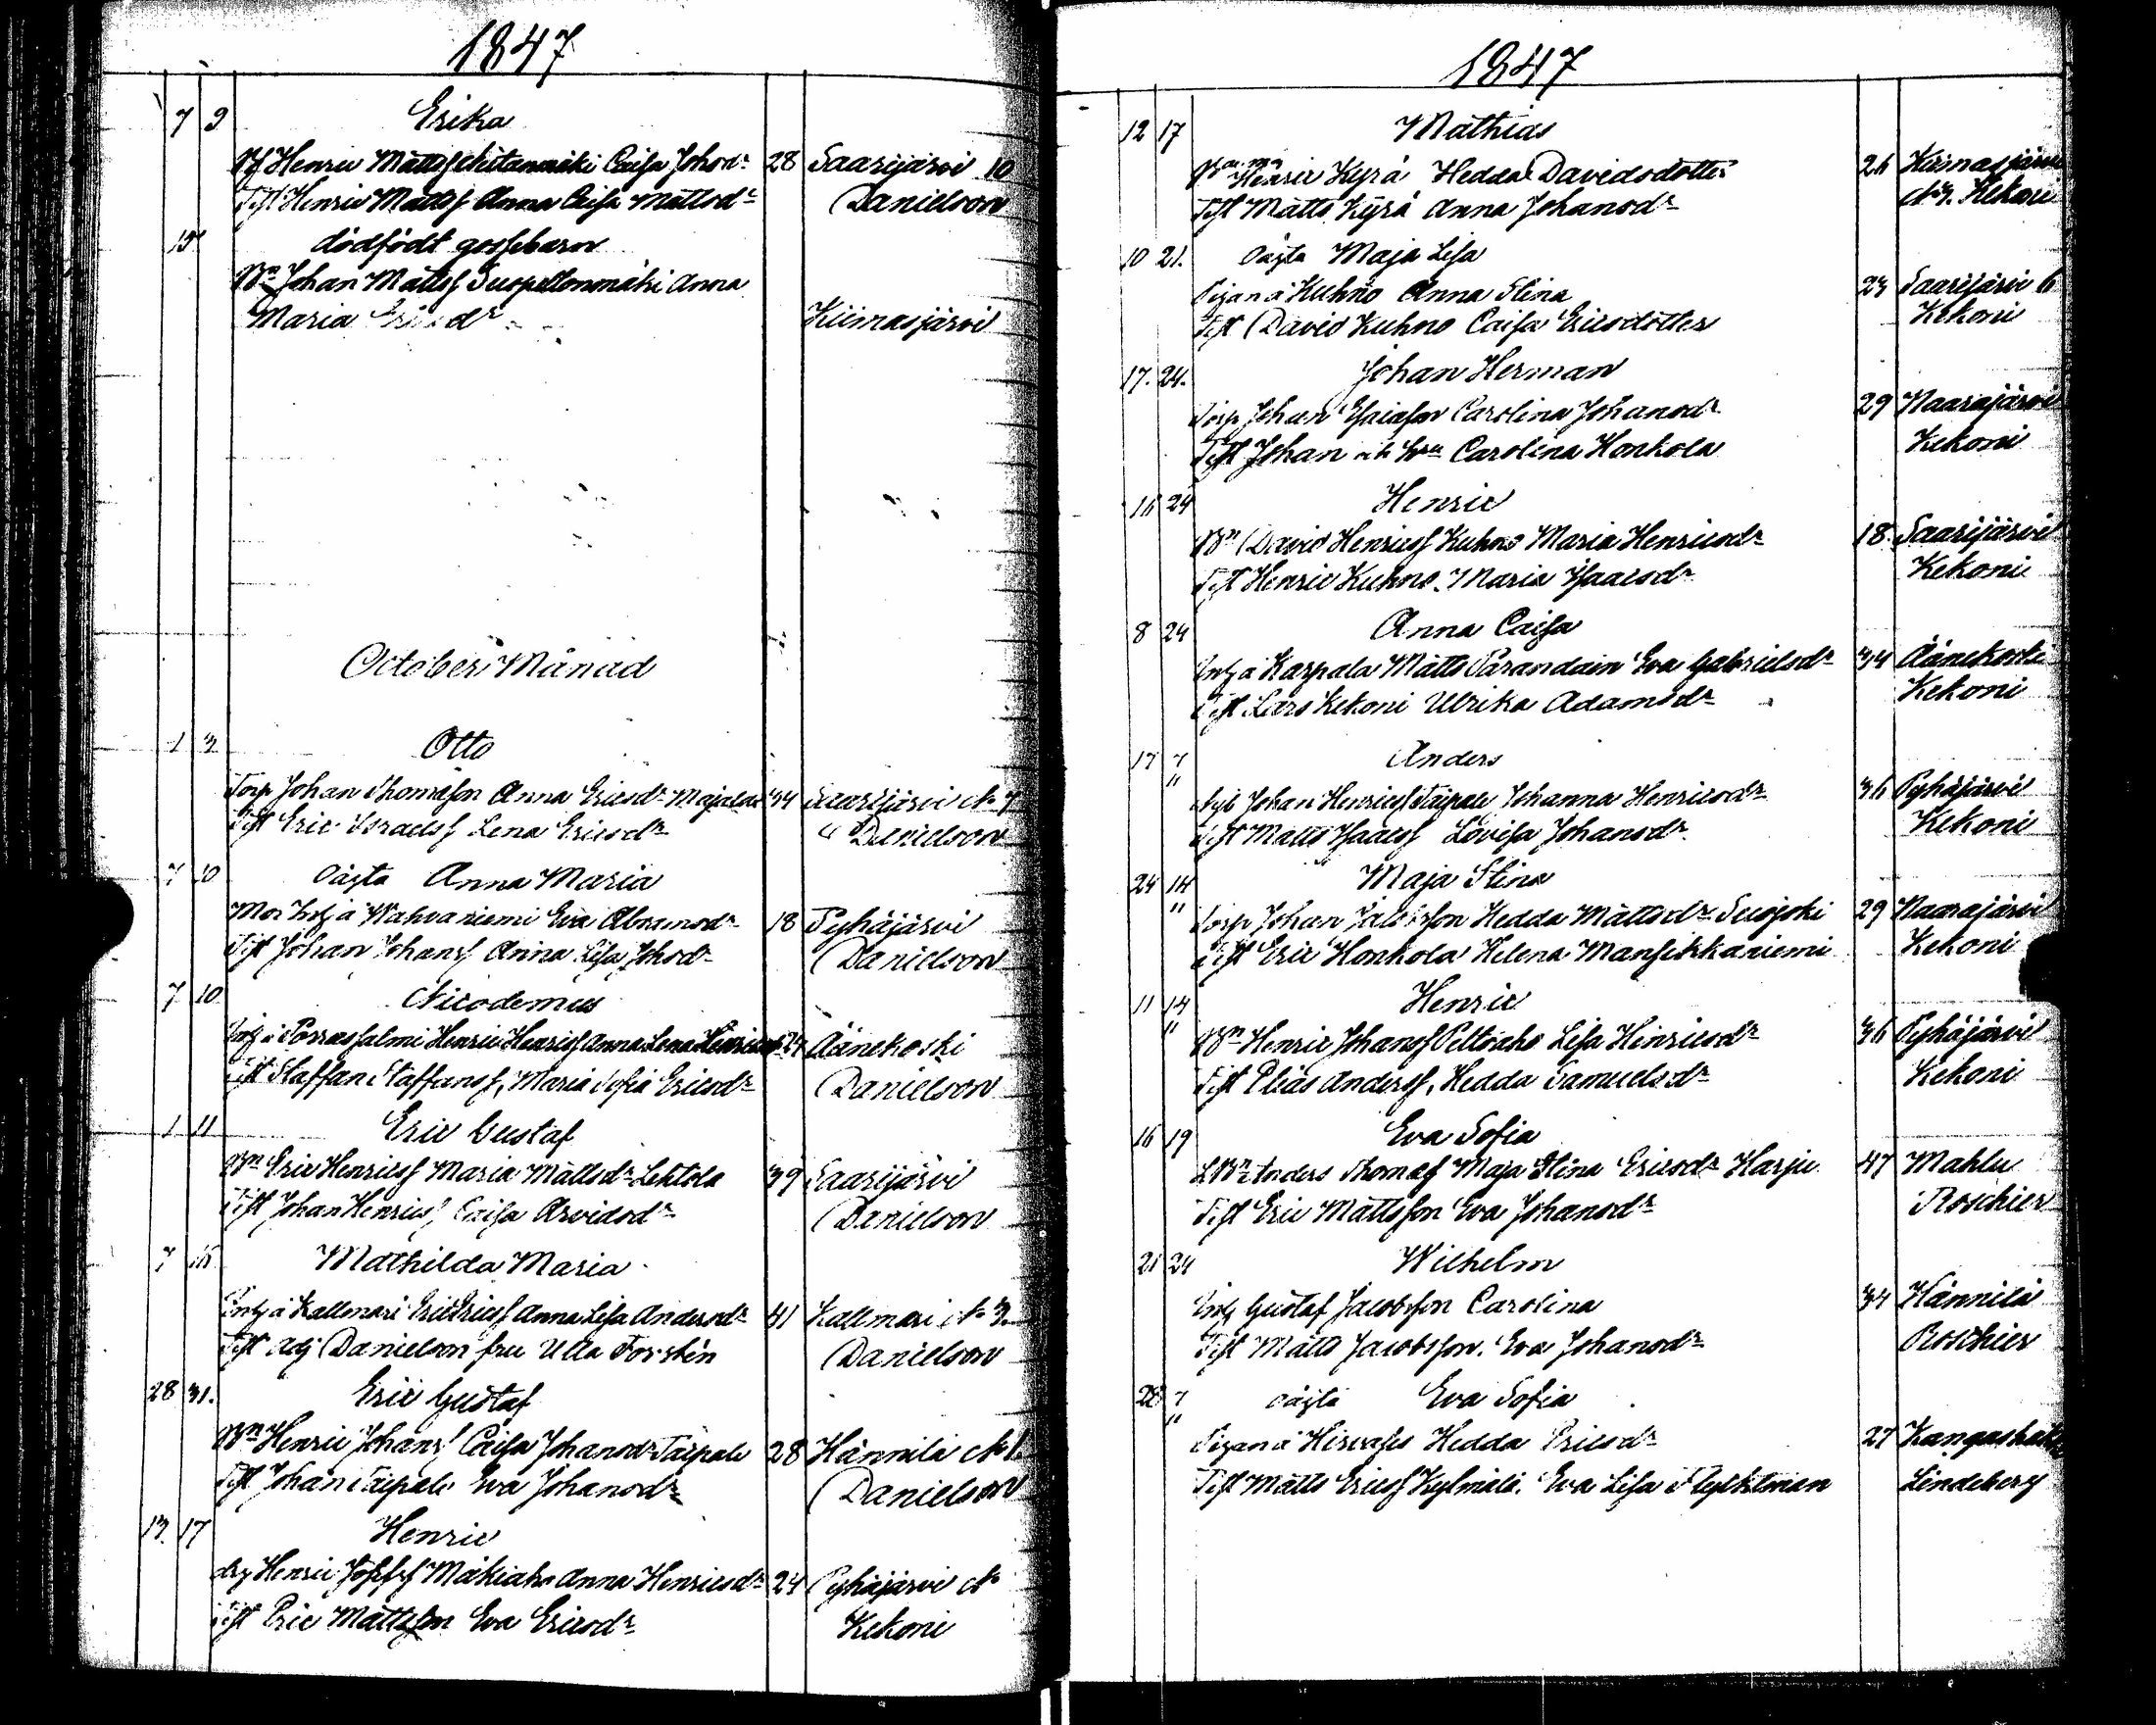 1847
7 9 Erika
Henric Mattss Caisa Johsdr 28 Saarijärvi 10
Test Henric Mattss Anna Caisa Mattsdr Danielson
15 dödfödt gossebarn
Bn Johan Mattss Suopellonmäki Anna
Maria Kiimasjärvi
October Månad
1 3 Otto
Torp Johan Thomasson Anna Ericsdr Majalax 34 Saarijärvi No 7
Test Eric Israelss Lena Ericsdr " Danielson
7 10 oägta Anna Maria
Mor Inh å Wahvaniemi Eva Abramsdr 18 Pyhäjärvi
Test Johan Johanss Anna Lisa Johsdr Danielson
7 10 Nicodemus
Inh å Porrassalmi Henric Henricss Anna Lena 24 Äänekoski
Test Staffan Staffanss, Maria Sofia Ericsdr Danielson
1 11 Eric Gustaf
Bn Eric Henricss Maria Mattsdr Lehtola 39 Saarijärvi
Test Johan Henricss, Caisa Arvidsdr Danielson
7 15 Mathilda Maria
Inh å Kallmari Eric Ericss Anna Lisa Andersdr 41 Kallmari No 3
Test Adj Danielson fru Ulla Forstén Danielson
28 31. Eric Gustaf
Bn Henric Johanss Caisa Johansdr Taipale 28 Hännilä No 1
Test Johan Taipale Eva Johansdr Danielson
13. 17 Henric
Henric Josefss Mäkiaho Anna Henricsdr 24 Pyhäjärvi No
Test Eric Mattsson Eva Ericsdr Kekoni
1847
12 17 Mathias
Henric Kyrå Hedda Davidsdotter 26 Kiimasjärvi
Test Matts Kyrå Anna Johansdr No 3. Kekoni
10 21. oägta Maja Lisa
Pigan å Kuhno Anna Stina 23 Saarijärvi 6
Test David Kuhno Caisa Ericsdotter Kekoni
17. 24. Johan Herman
Torp Johan Esaiasson Carolina Johansdr 29 Naarajärvi
Test Johan och hu Carolina Honkola Kekoni
16 24 Henric
Bn David Henricss Kuhno Maria Henricsdr 18 Saarijärvi
Test Henric Kuhno. Maria Isaacsdr Kekoni
8 24 Anna Caisa
Inh å Karpala Matts Parandain Eva Gabrielsdr 34 Äänekoski
Test Lars Kekoni Ulrika Adamsdr Kekoni
17 7 Anders
" Johan Henricss Taipale Johanna Henricsdr 36 Pyhäjärvi
Test Matts Isaacss Lovisa Johansdr Kekoni
24 14 Maja Stina
" Torp Johan Jacobsson Hedda Mattsdr Suojoki 29 Naarajärvi
Test Eric Honkola Helena Mansikkaniemi Kekoni
11 14 Henric
" Bn Henric Johanss Peltoaho Lisa Hinricsdr 36 Pyhäjärvi
Test Elias Anderss, Hedda Samuelsdr Kekoni
16 19 Eva Sofia
Anders Thomass Maja Stina Ericsdr Harju 47 Mahlu
Test Eric Mattsson Eva Johansdr Roschier
21 24 Wilhelm
Inh Gustaf Jacobsson Carolina 34 Hännilä
Test Matts Jacobsson. Eva Johansdr Roschier
28 7 oägta Eva Sofia
" Pigan å Hirvases Hedda Ericsdr 27 Kangashäk
Test Matts Ericss Kylmälä. Eva Lisa Flycktman Lindeberg